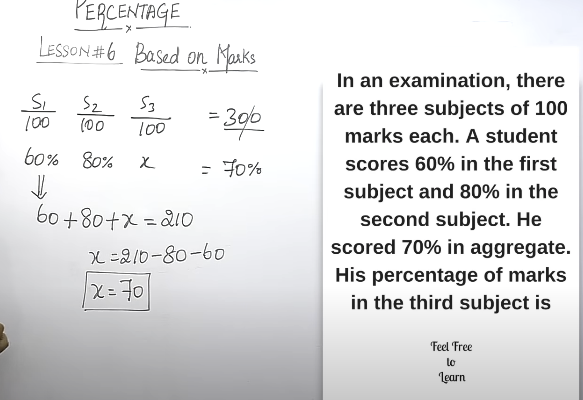 PERCENTAGE
LESSON#6 Based on Marks
S1/100 S2/100 S3/100 = 300
60% 80% x = 70%
60+80+x=210
x=210-80-60
x=70
In an examination, there
are three subjects of 100
marks each. A student
scores 60% in the first
subject and 80% in the
second subject. He
scored 70% in aggregate.
His percentage of marks
in the third subject is
Feel Free
to
Learn